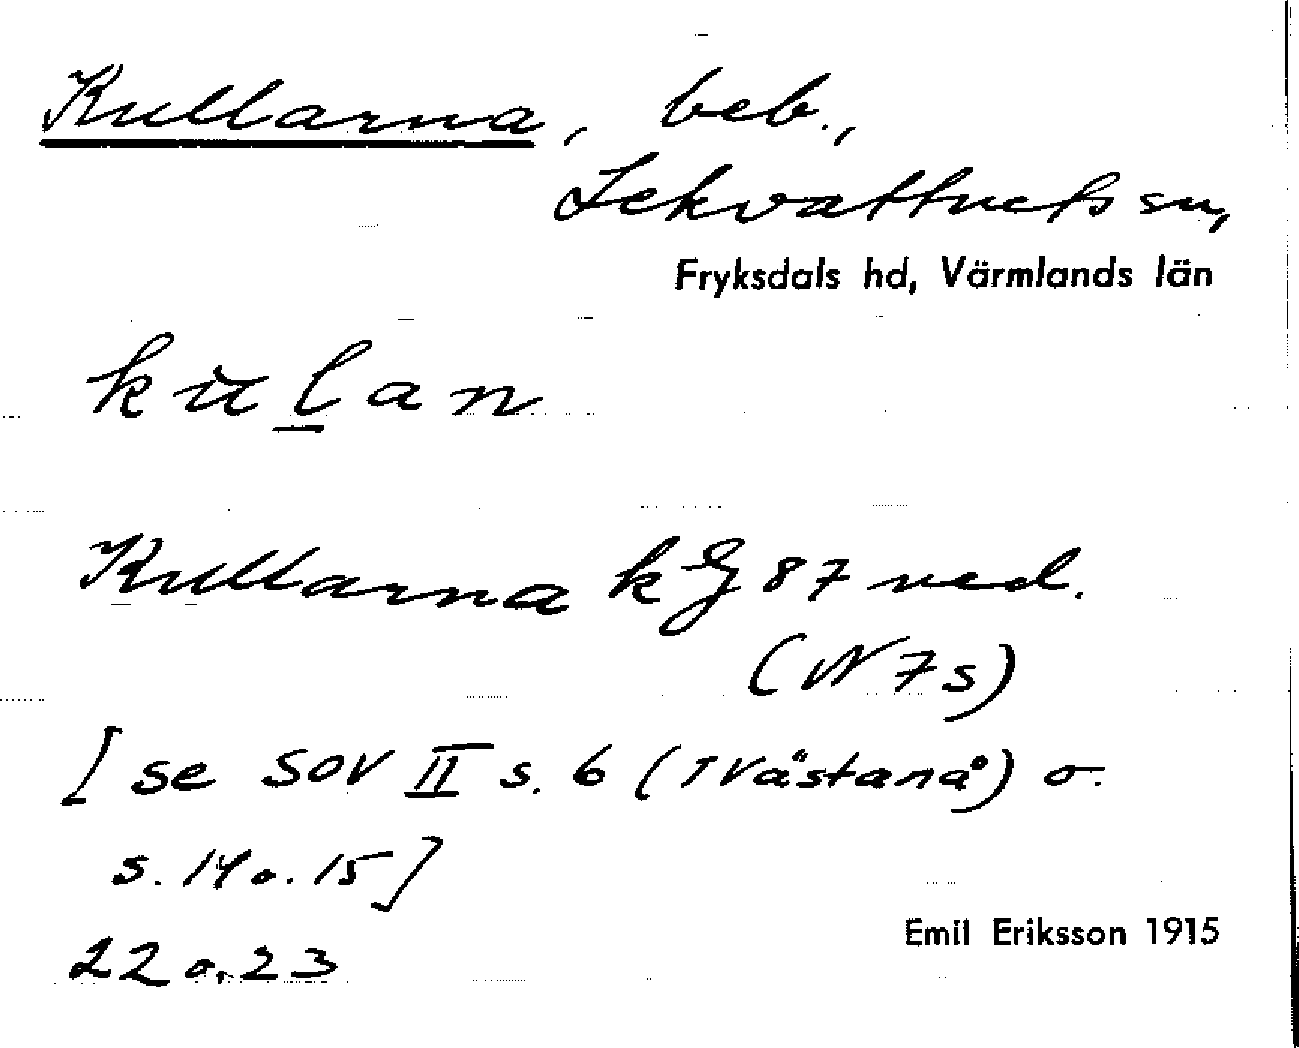 Kullarna, beb.,
Lekvattnets sn,
Fryksdals hd, Värmlands län
kulan
Kullarna k GJ 87 ned.
(N 7 s)
[se SOV II s. 6 (T Västanå) o.
s. 14 o. 15]
Emil Eriksson 1915
22 o. 23